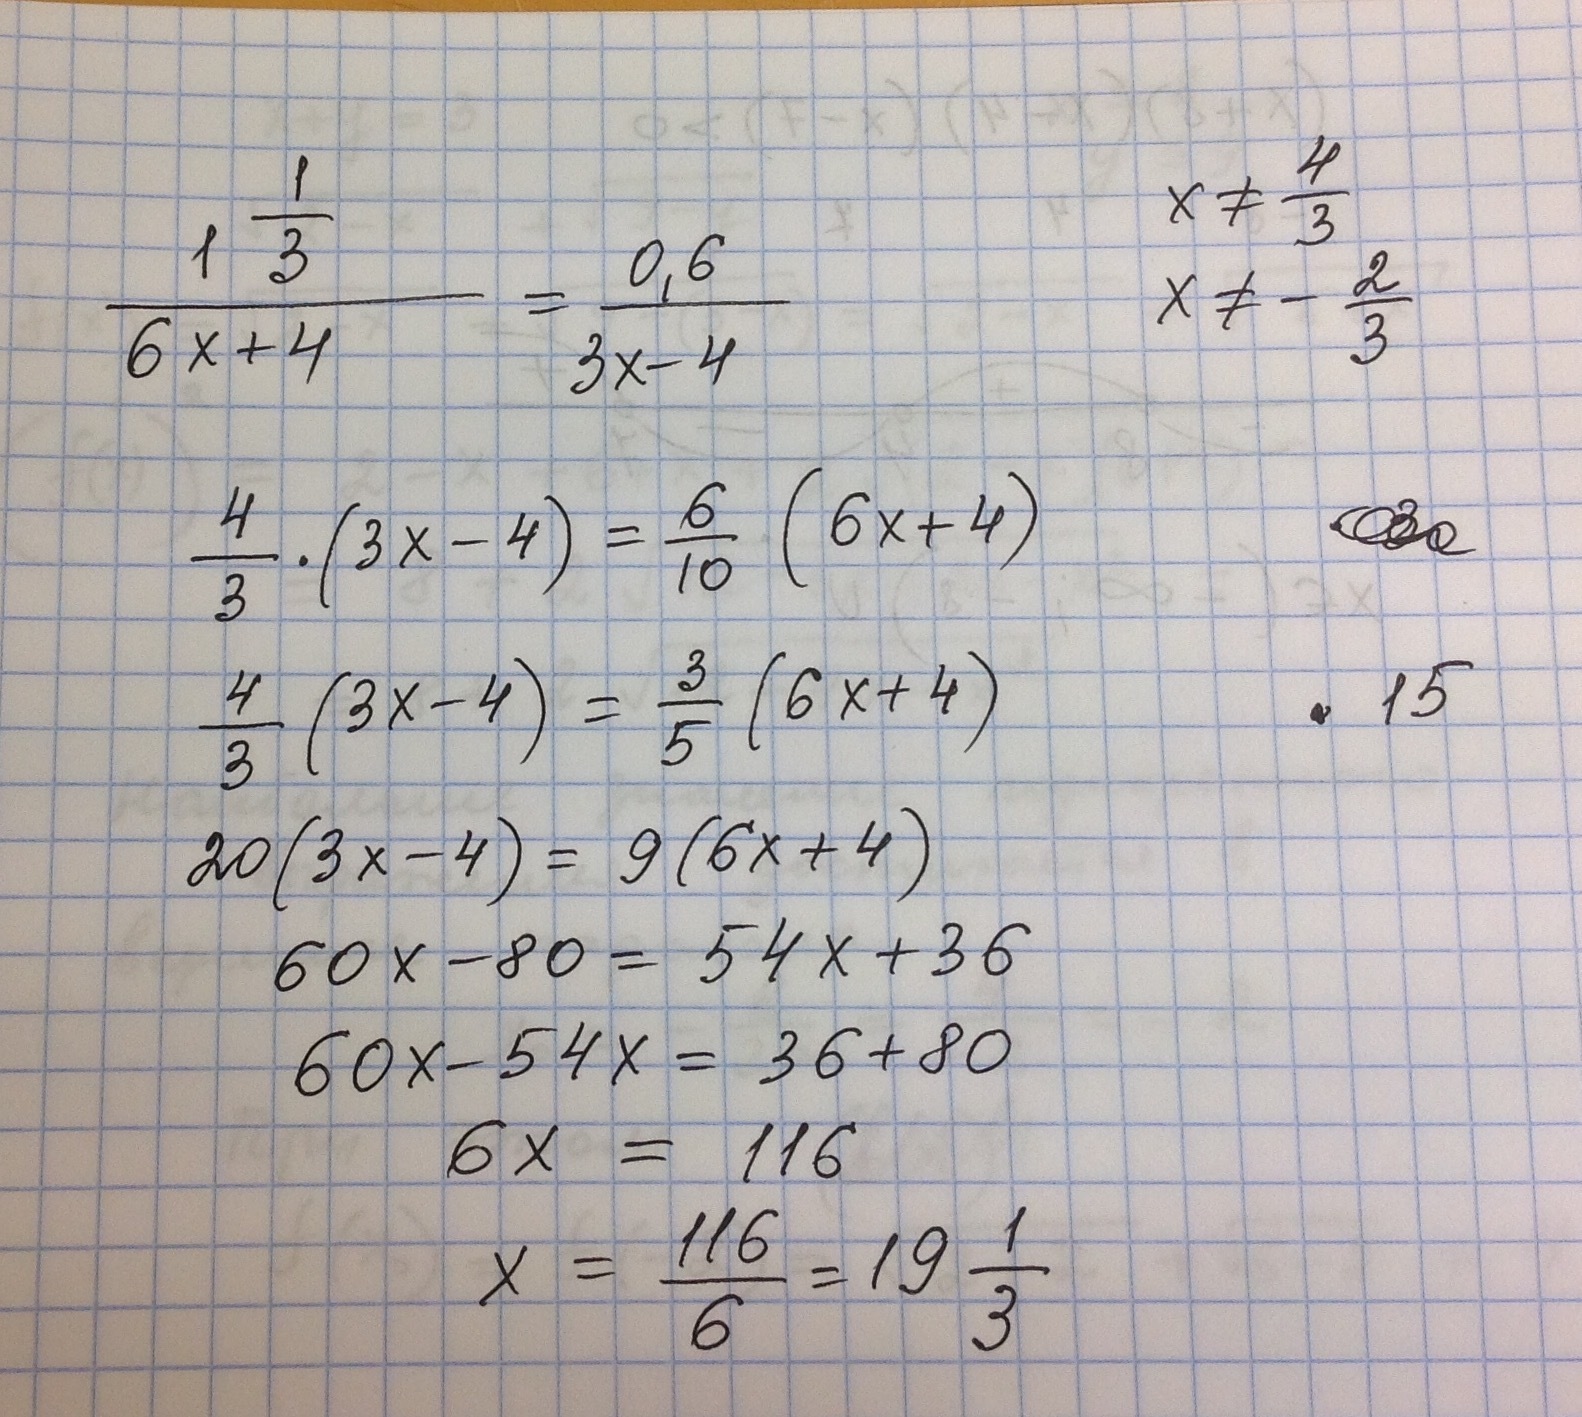 1 1/3 / 6x+4 = 0,6 / 3x-4
x ≠ 4/3
x ≠ - 2/3
4/3 · (3x-4) = 6/10 (6x+4)
4/3 (3x-4) = 3/5 (6x+4) · 15
20(3x-4) = 9(6x+4)
60x-80 = 54x+36
60x-54x = 36+80
6x = 116
x = 116/6 = 19 1/3